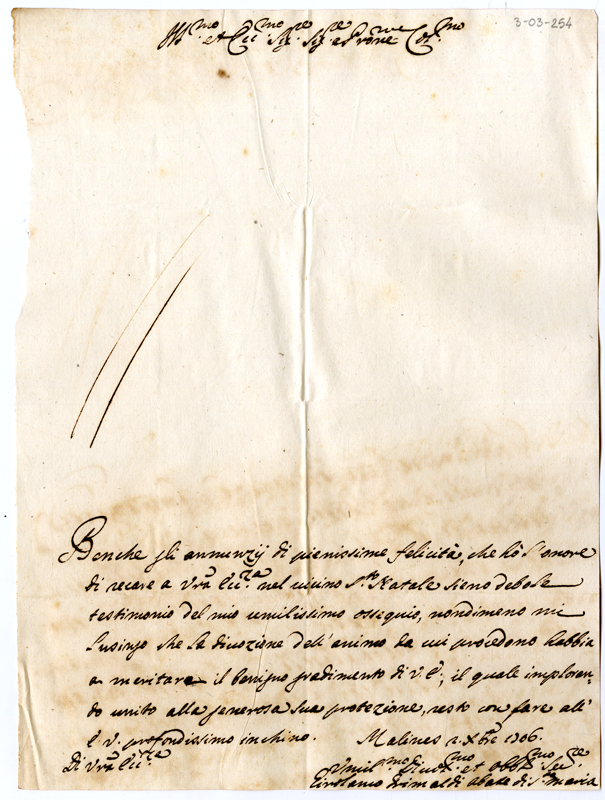 3-03-254
Ill.mo et Ecc.mo Sig.re Sig.re et Prone Col.mo
Benche gli annunzij di pienissime felicità, che hò l'onore
di recare a Vrã Ecc.za nel vicino S.to Natale sieno debole
testimonio del mio umilissimo ossequio, nondimeno mi
lusingo che la divozione dell'animo da cui procedono habbia
a meritare il benigno gradimento di V.E., il quale imploran-
do unito alla generosa sua protezione, resto con fare all'
E.V. profondissimo inchino. Malines 2. Xbre 1706.
Di Vrã Ecc.za
Umil.mo Divot.mo et obb.mo Ser.re
Girolamo Grimaldi abate di S.ta Maria